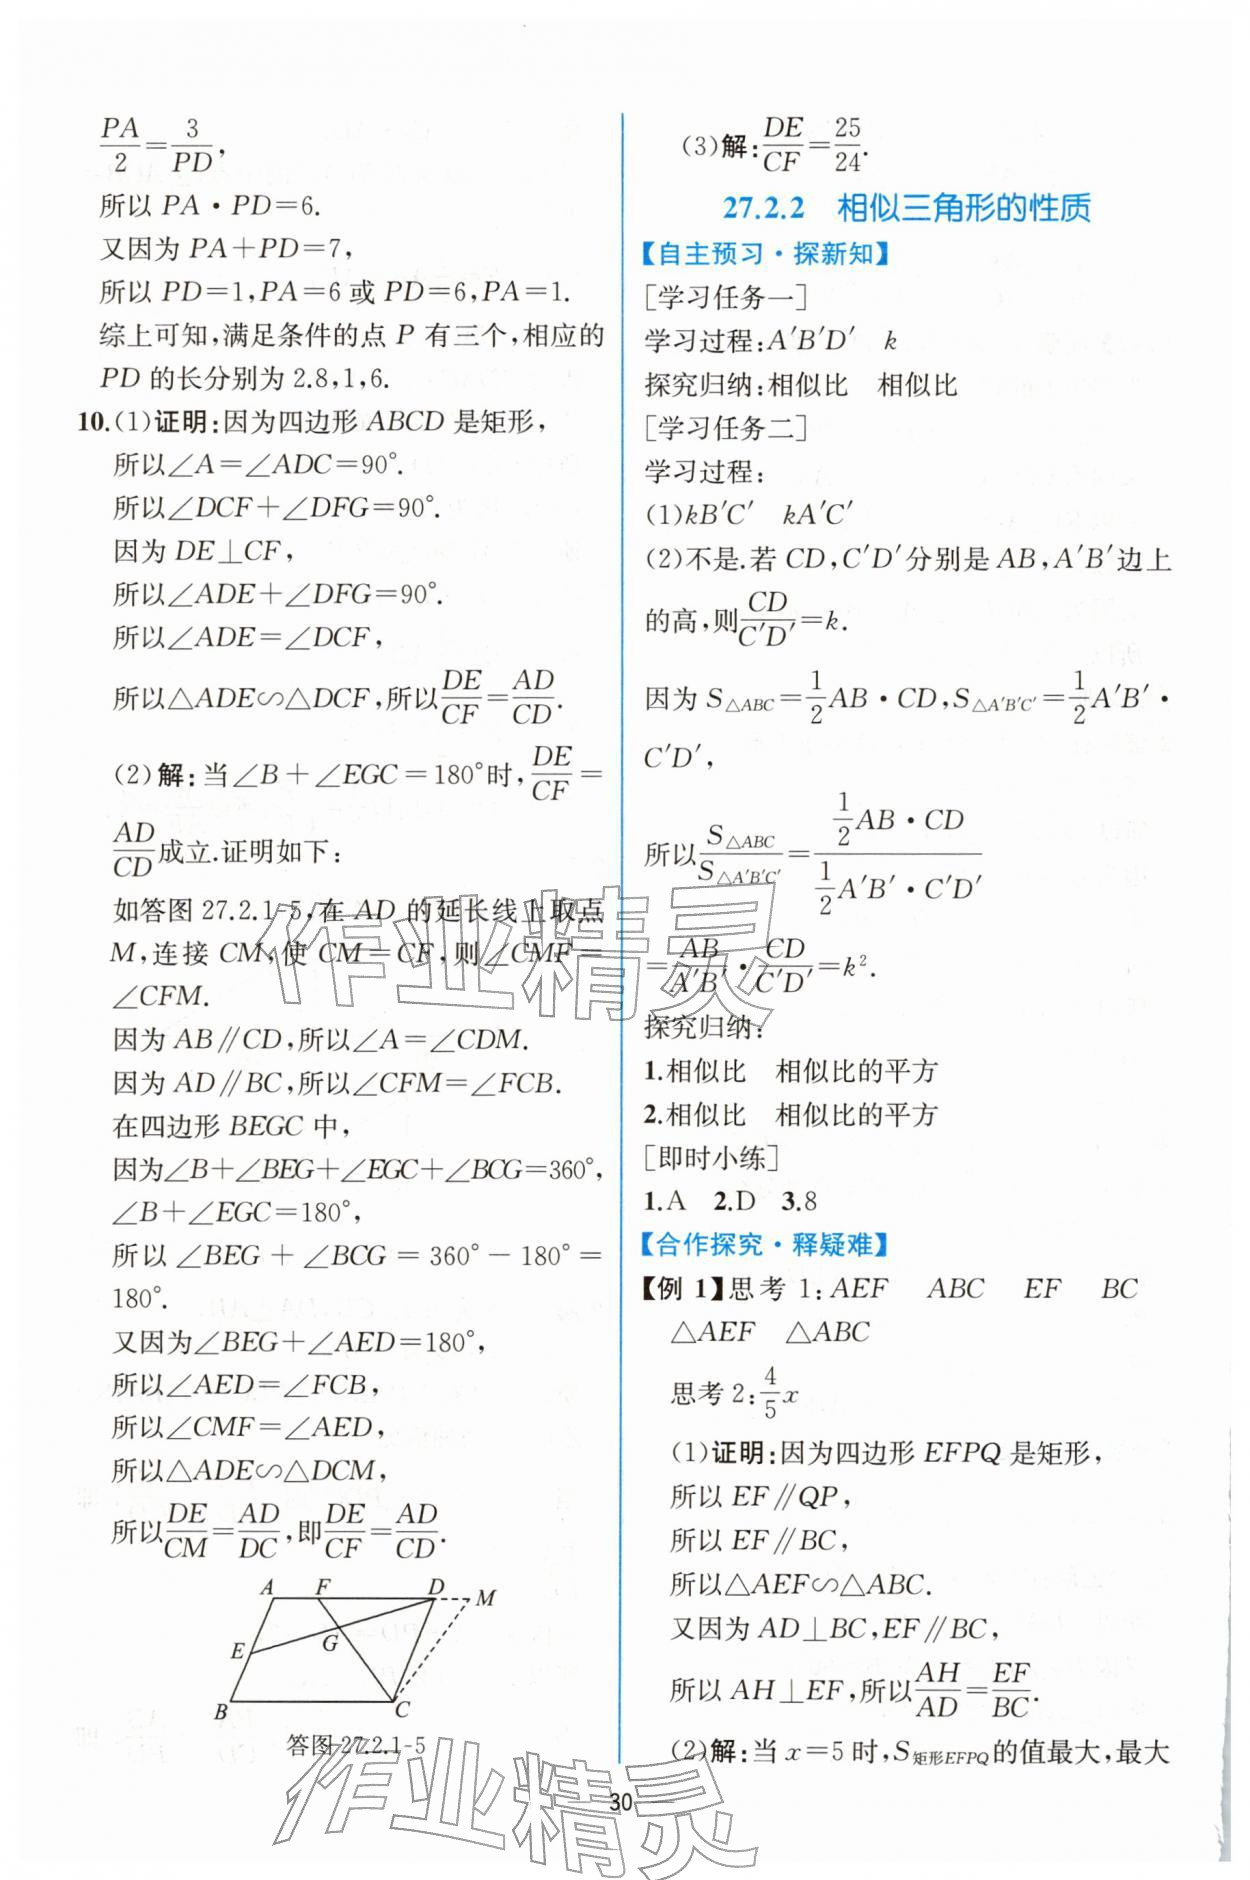 PA/2=3/PD,
所以 PA·PD=6.
又因为 PA+PD=7,
所以 PD=1,PA=6 或 PD=6,PA=1.
综上可知,满足条件的点 P 有三个,相应的
PD 的长分别为 2.8,1,6.
10.(1)证明:因为四边形 ABCD 是矩形,
所以∠A=∠ADC=90°.
所以∠DCF+∠DFG=90°.
因为 DE⊥CF,
所以∠ADE+∠DFG=90°.
所以∠ADE=∠DCF,
所以△ADE∽△DCF,所以DE/CF=AD/CD.
(2)解:当∠B+∠EGC=180°时,DE/CF=
AD/CD成立.证明如下:
如答图 27.2.1-5,在 AD 的延长线上取点
M,连接 CM,使 CM=CF,则∠CMF=
∠CFM.
因为 AB∥CD,所以∠A=∠CDM.
因为 AD∥BC,所以∠CFM=∠FCB.
在四边形 BEGC 中,
因为∠B+∠BEG+∠EGC+∠BCG=360°,
∠B+∠EGC=180°,
所以∠BEG+∠BCG=360°-180°=
180°.
又因为∠BEG+∠AED=180°,
所以∠AED=∠FCB,
所以∠CMF=∠AED,
所以△ADE∽△DCM,
所以DE/CM=AD/DC,即DE/CF=AD/CD.
A F D M
E G
B C
答图 27.2.1-5
(3)解:DE/CF=25/24.
27.2.2 相似三角形的性质
【自主预习·探新知】
[学习任务一]
学习过程:A′B′D′ k
探究归纳:相似比 相似比
[学习任务二]
学习过程:
(1)kB′C′ kA′C′
(2)不是.若 CD,C′D′分别是 AB,A′B′边上
的高,则CD/C′D′=k.
因为 S△ABC=1/2AB·CD,S△A′B′C′=1/2A′B′·
C′D′,
所以S△ABC/S△A′B′C′=(1/2AB·CD)/(1/2A′B′·C′D′)
=AB/A′B′·CD/C′D′=k².
探究归纳:
1.相似比 相似比的平方
2.相似比 相似比的平方
[即时小练]
1.A 2.D 3.8
【合作探究·释疑难】
【例 1】思考 1:AEF ABC EF BC
△AEF △ABC
思考 2:4/5x
(1)证明:因为四边形 EFPQ 是矩形,
所以 EF∥QP,
所以 EF∥BC,
所以△AEF∽△ABC.
又因为 AD⊥BC,EF∥BC,
所以 AH⊥EF,所以AH/AD=EF/BC.
(2)解:当 x=5 时,S矩形EFPQ的值最大,最大
30
作业精灵
作业精灵